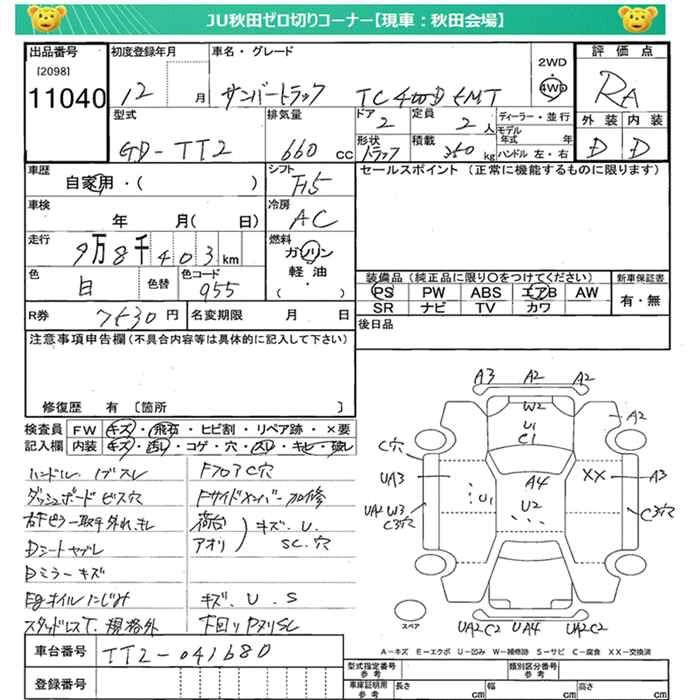 JU秋田ゼロ切りコーナー【現車：秋田会場】
出品番号 初度登録年月 車名・グレード 2WD・4WD 評価点
[2098]
11040 12 月 サンバートラック TC 4WD 5MT RA
型式 排気量 ドア 2 定員 2 人 ディーラー・並行 外装 内装
モデル年式 年
GD-TT2 660 cc 形状 トラック 積載 350 kg ハンドル 左・右 D D
車歴 シフト セールスポイント (正常に機能するものに限ります)
自家用・( ) F5
車検 冷房
年 月( 日) AC
走行 燃料
9万8千403 km ガソリン
軽油
( )
色 色替 色コード
白 955
装備品 (純正品に限り○をつけてください) 新車保証書
PS PW ABS エアB AW 有・無
SR ナビ TV カワ
R券 7530 円 名変期限 月 日 後日品
注意事項申告欄(不具合内容等は具体的に記入して下さい)
修復歴 有 〔箇所 〕
検査員 FW キズ・飛石・ヒビ割・リペア跡・×要
記入欄 内装 キズ・汚レ・コゲ・穴・スレ・キレ・破レ
ハンドル スレ Fフロア C穴
ダッシュボード ビス穴 Fサイドメンバー 加修
荷台 キズ.U.
アオリ S.C.穴
Dシート ヤブレ
Dミラー キズ
Egオイルにじみ キズ.U.S
スタッドレスT.規格外 下回り PヌリSC
車台番号 TT2-041680
登録番号
A3 A2 A2
W2
U1
C1
A2
C穴
UA3 A4 XX A3
U1 U2
UA2 W3
C3穴 C3穴
スペア UA2C2 UA4 UA2C2
A－キズ E－エクボ U－凹み W－補修跡 S－サビ C－腐食 XX－交換済
型式指定番号 参考 類別区分番号 参考
車庫証明用 参考 長さ cm 幅 cm 高さ cm